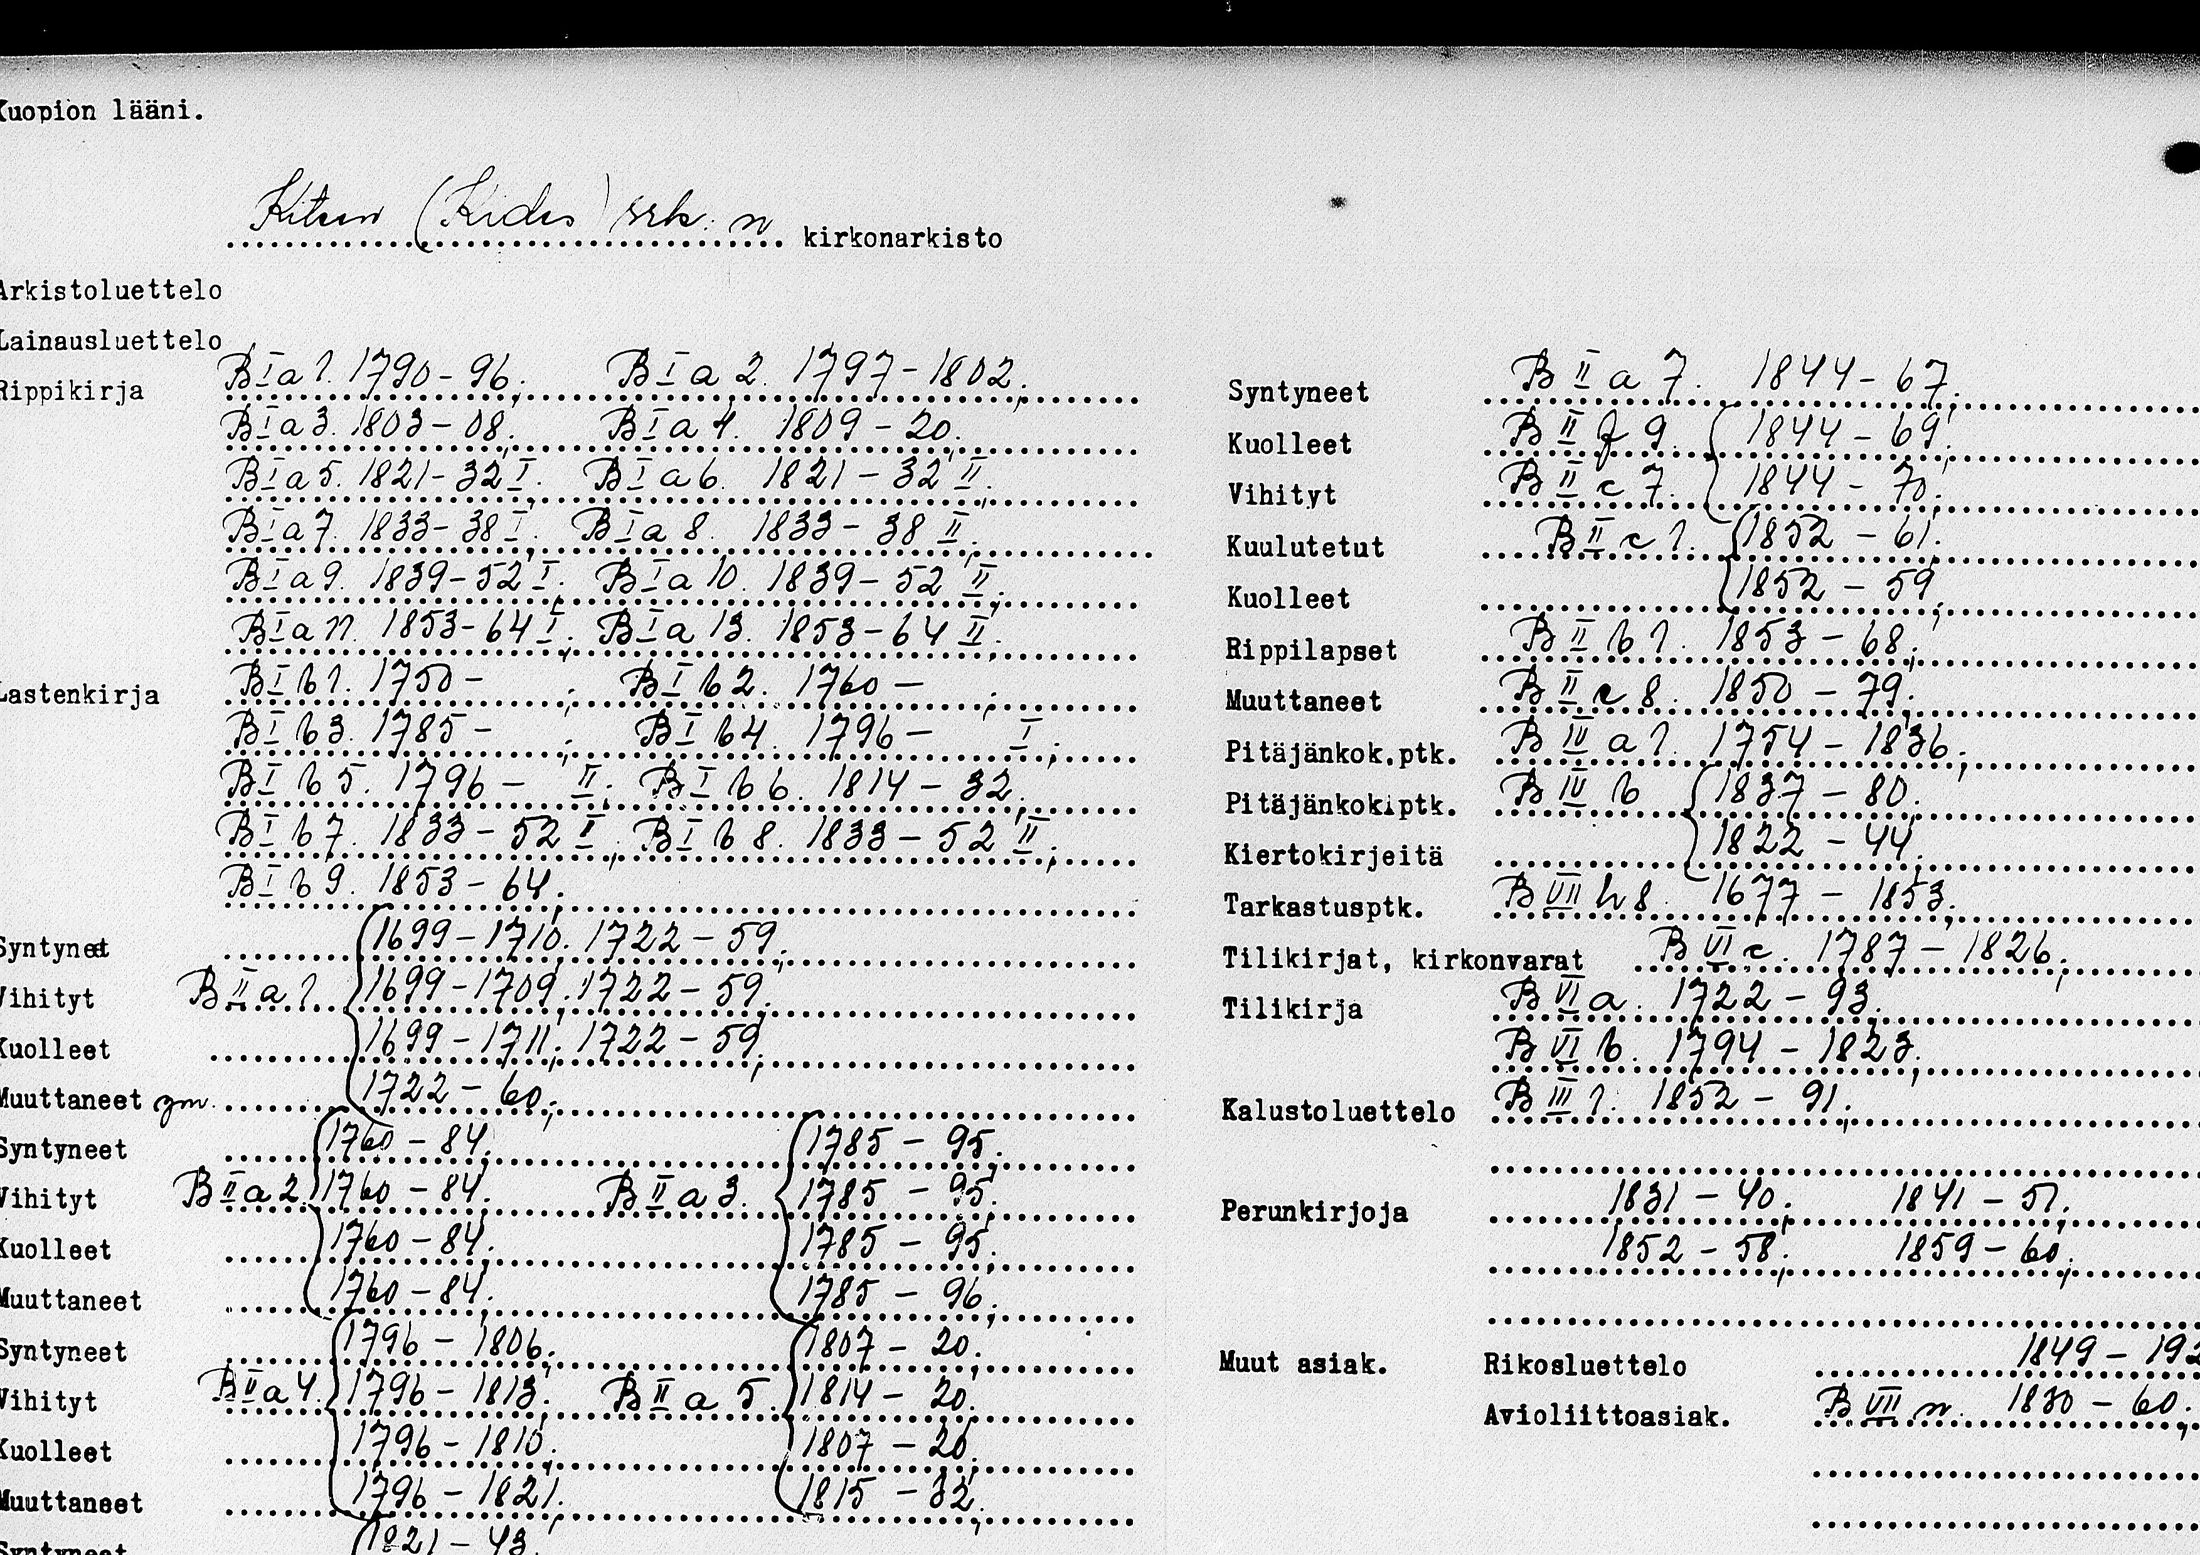 Kuopion lääni.
Kiteen (Kides) srk:n kirkonarkisto
Arkistoluettelo
Lainausluettelo
Rippikirja B I a 1. 1790-96; B I a 2. 1797-1802;
B I a 3. 1803-08; B I a 4. 1809-20;
B I a 5. 1821-32 I; B I a 6. 1821-32 II;
B I a 7. 1833-38 I; B I a 8. 1833-38 II;
B I a 9. 1839-52 I; B I a 10. 1839-52 II;
B I a 11. 1853-64 I; B I a 13. 1853-64 II;
Lastenkirja B I b 1. 1750- ; B I b 2. 1760- ;
B I b 3. 1785- ; B I b 4. 1796- I;
B I b 5. 1796- II; B I b 6. 1814-32;
B I b 7. 1833-52 I; B I b 8. 1833-52 II;
B I b 9. 1853-64;
Syntyneet 1699-1710; 1722-59;
Vihityt B II a 1. 1699-1709; 1722-59;
Kuolleet 1699-1711; 1722-59;
Muuttaneet ym. 1722-60;
Syntyneet 1760-84; 1785-95;
Vihityt B II a 2. 1760-84; B II a 3. 1785-95;
Kuolleet 1760-84; 1785-95;
Muuttaneet 1760-84; 1785-96;
Syntyneet 1796-1806; 1807-20;
Vihityt B II a 4. 1796-1813; B II a 5. 1814-20;
Kuolleet 1796-1810; 1807-20;
Muuttaneet 1796-1821; 1815-32;
Syntyneet 1821-43;
Syntyneet B II a 7. 1844-67;
Kuolleet B II f 9. 1844-69;
Vihityt B II c 7. 1844-70;
Kuulutetut B II c 1. 1852-61;
Kuolleet 1852-59;
Rippilapset B II b 1. 1853-68;
Muuttaneet B II e 8. 1850-79;
Pitäjänkok.ptk. B IV a 1. 1754-1836;
Pitäjänkok.ptk. B IV b 1837-80;
Kiertokirjeitä 1822-44;
Tarkastusptk. B VII h 8. 1677-1853;
Tilikirjat, kirkonvarat B VI c. 1787-1826;
Tilikirja B VI a. 1722-93;
B VI b. 1794-1823;
Kalustoluettelo B III 1. 1852-91;
Perunkirjoja 1831-40; 1841-51;
1852-58; 1859-60;
Muut asiak. Rikosluettelo 1849-192
Avioliittoasiak. B VII n. 1830-60;